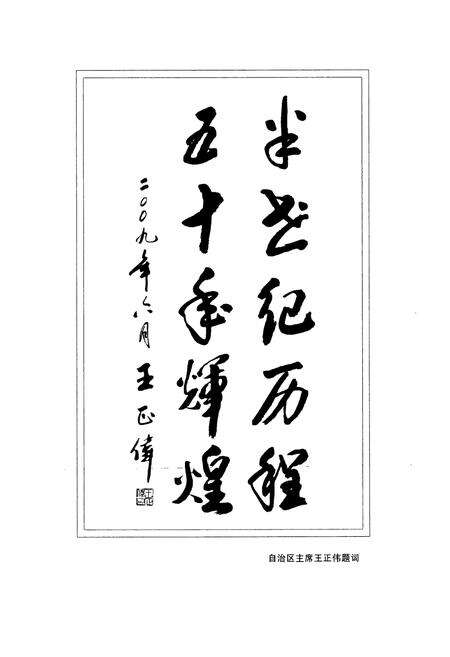 半世纪历程
五十年輝煌
二〇〇九年六月 王正偉
自治区主席王正伟题词